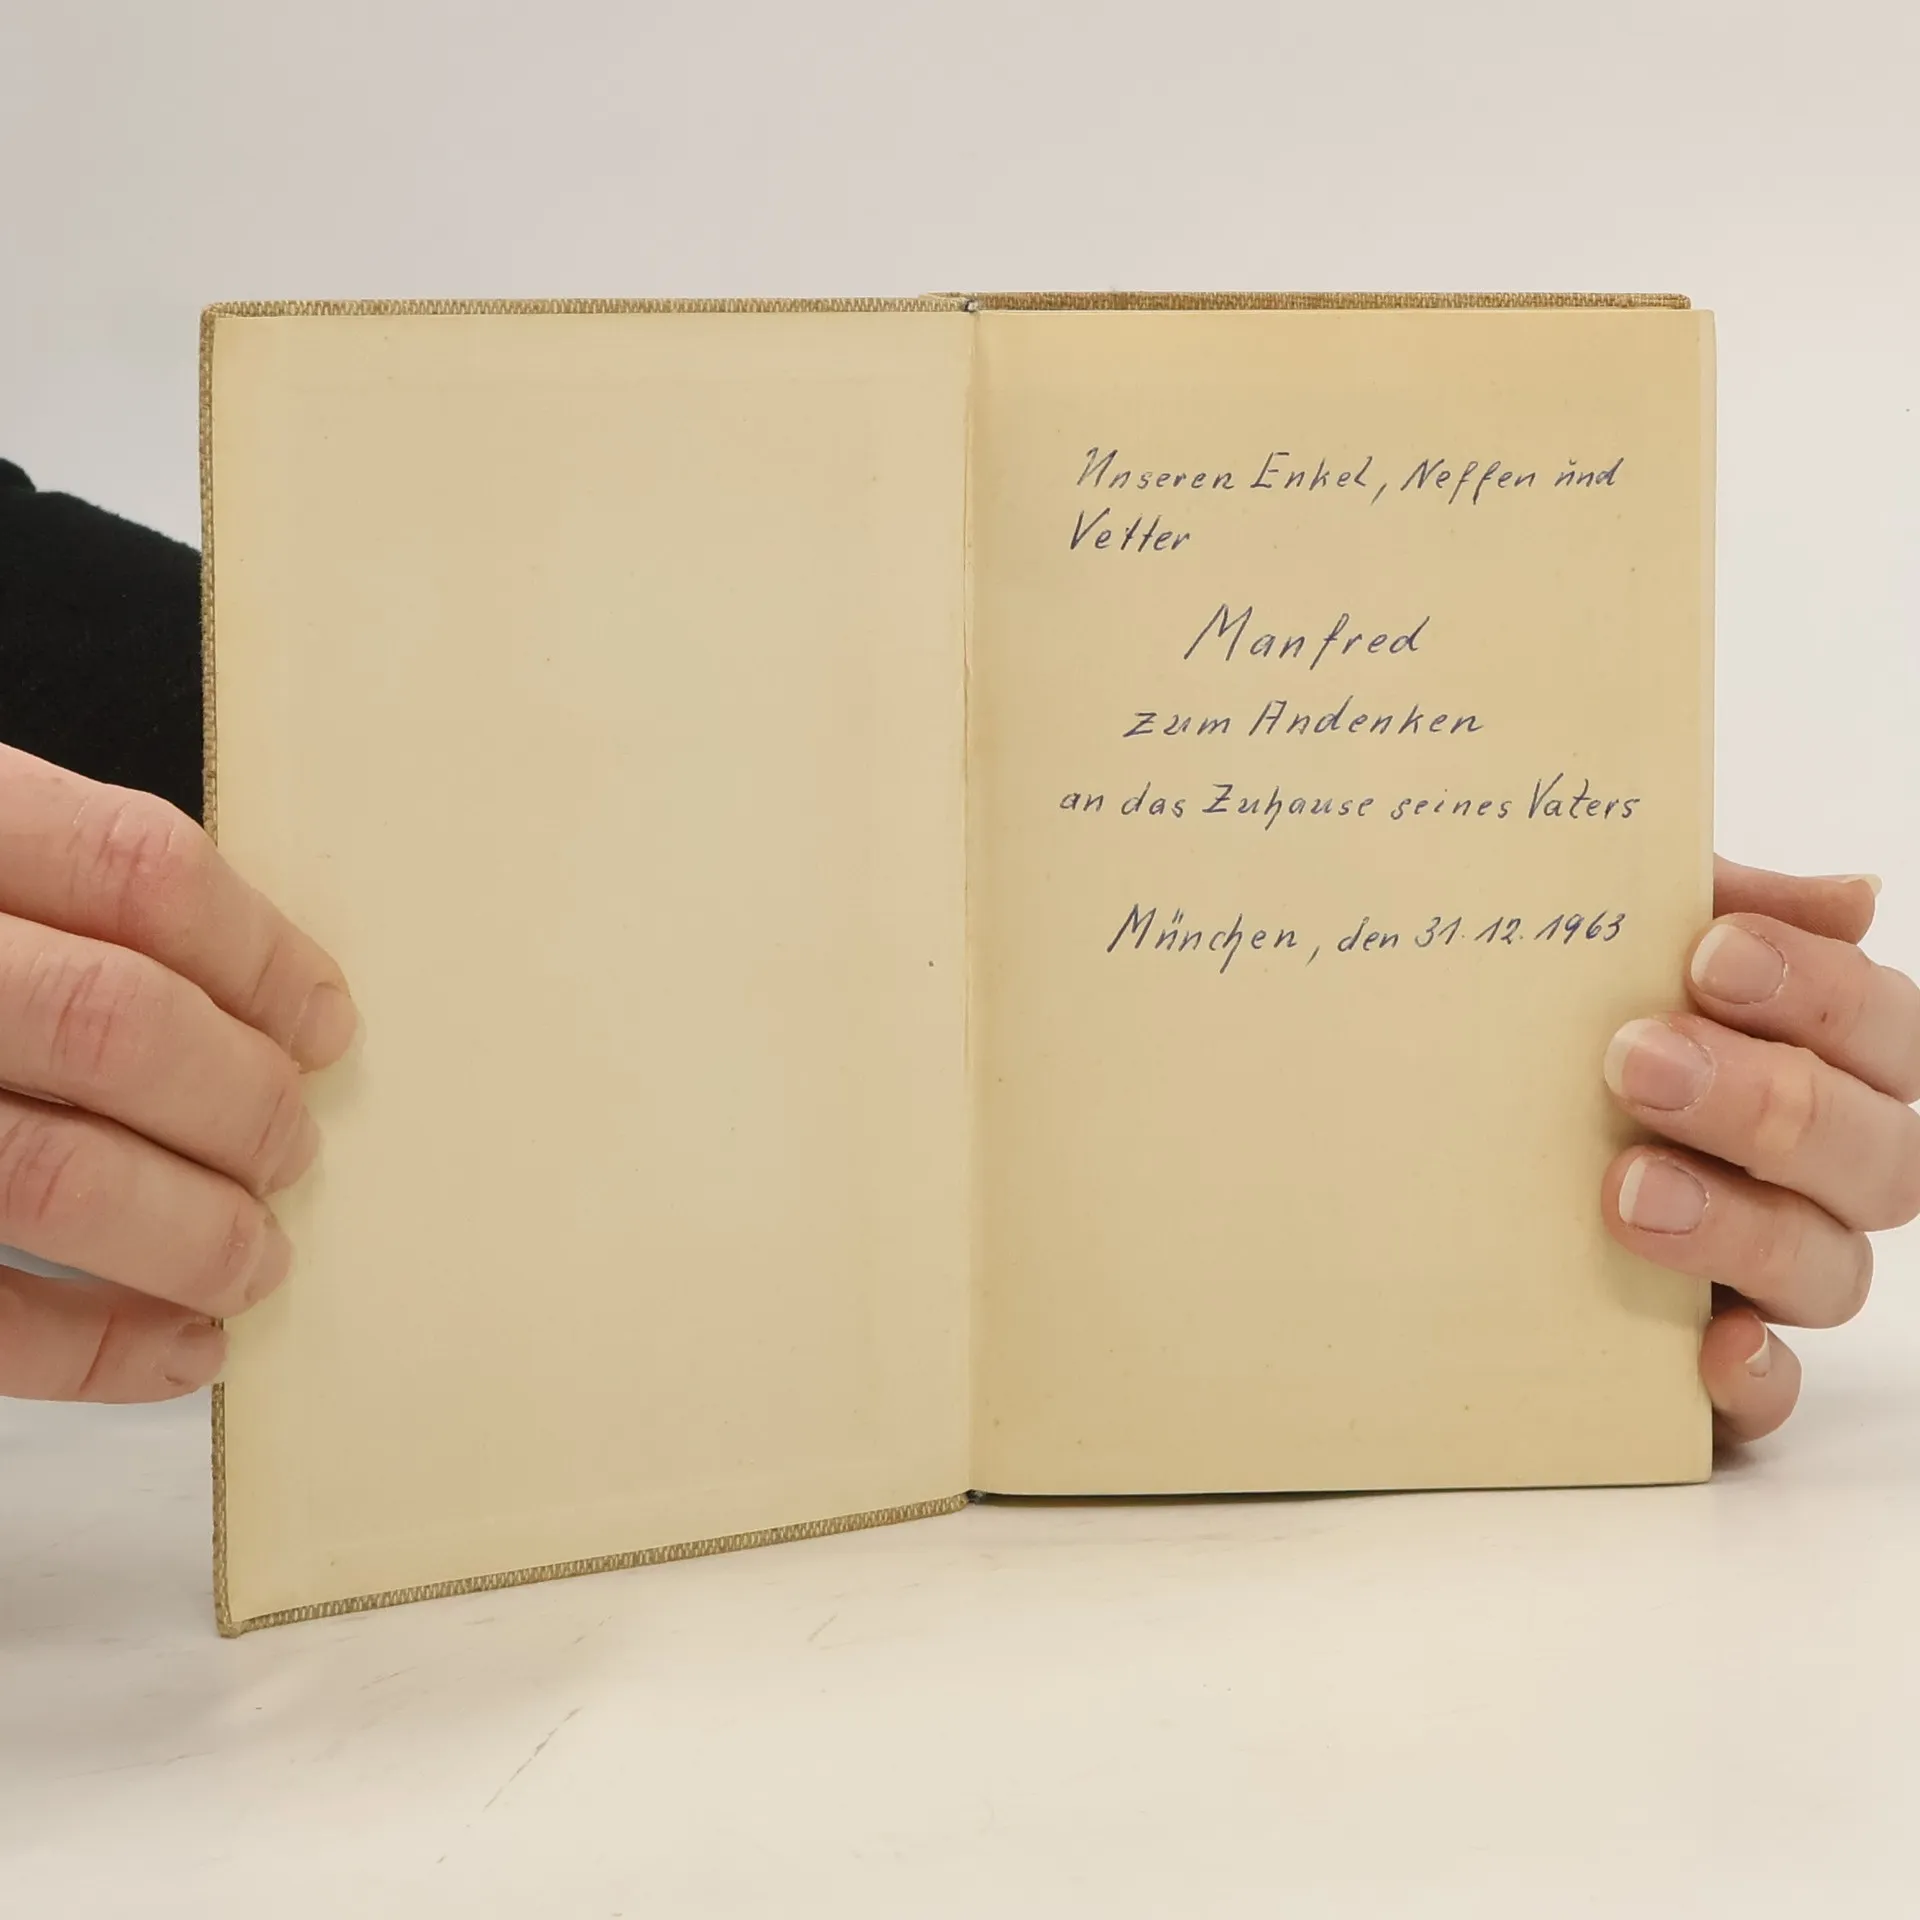 Unseren Enkel, Neffen und
Vetter
Manfred
zum Andenken
an das Zuhause seines Vaters
München, den 31.12.1963